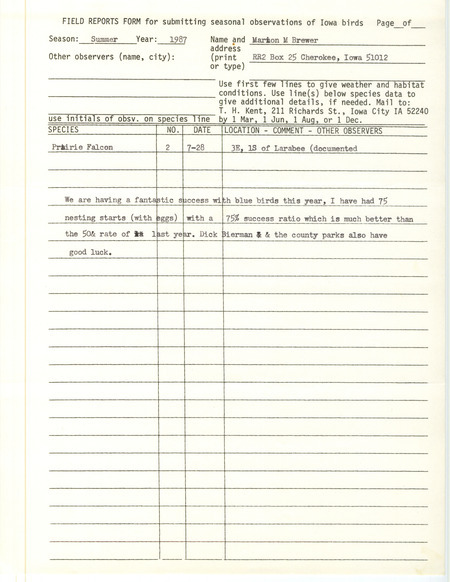 FIELD REPORTS FORM for submitting seasonal observations of Iowa birds Page__of__
Season: Summer Year: 1987 Name and Marion M Brewer
address
Other observers (name, city): (print RR2 Box 25 Cherokee, Iowa 51012
or type)
Use first few lines to give weather and habitat
conditions. Use line(s) below species data to
give additional details, if needed. Mail to:
T. H. Kent, 211 Richards St., Iowa City IA 52240
use initials of obsv. on species line by 1 Mar, 1 Jun, 1 Aug, or 1 Dec.
SPECIES NO. DATE LOCATION - COMMENT - OTHER OBSERVERS
Prairie Falcon 2 7-28 3E, 1S of Larabee (documented
We are having a fantastic success with blue birds this year, I have had 75
nesting starts (with eggs) with a 75% success ratio which is much better than
the 50& rate of last year. Dick Bierman & & the county parks also have
good luck.